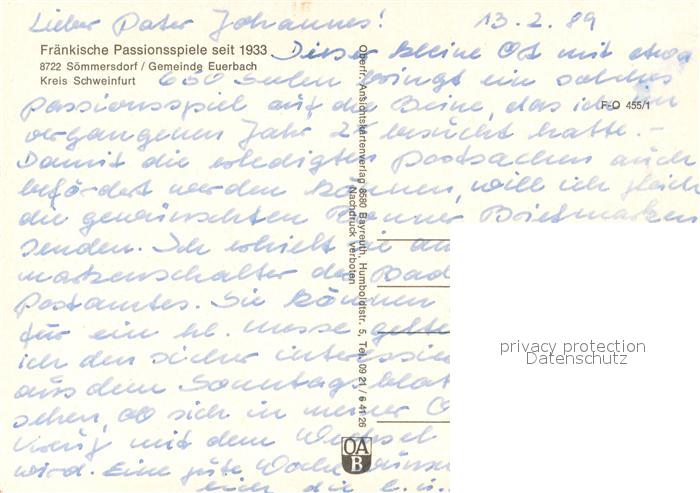 Lieber Pater Johannes! 13.2.89
Fränkische Passionsspiele seit 1933
8722 Sömmersdorf / Gemeinde Euerbach
Kreis Schweinfurt
Dieser kleine Ort mit etwa
650 Seelen bringt ein solches
Passionsspiel auf die Beine, das ich im
F-O 455/1
vergangenen Jahr besucht hatte. –
Damit die erledigten Postsachen auch
befördert werden können, will ich gleich
die gewünschten Briefmarken
senden. Ich erhielt sie am
markenschalter des Bad
Postamtes. Sie können
für ein hl. Messe gelten
ich den sicher interessie
aus dem Sonntagsblatt
sehen, ob sich in meiner
mit dem Wechsel
wird. Eine gute Woche wünscht
Oberfr. Ansichtskartenverlag 8580 Bayreuth, Humboldtstr. 5, Tel. 09 21 / 6 41 26
Nachdruck verboten
OA
B
privacy protection
Datenschutz